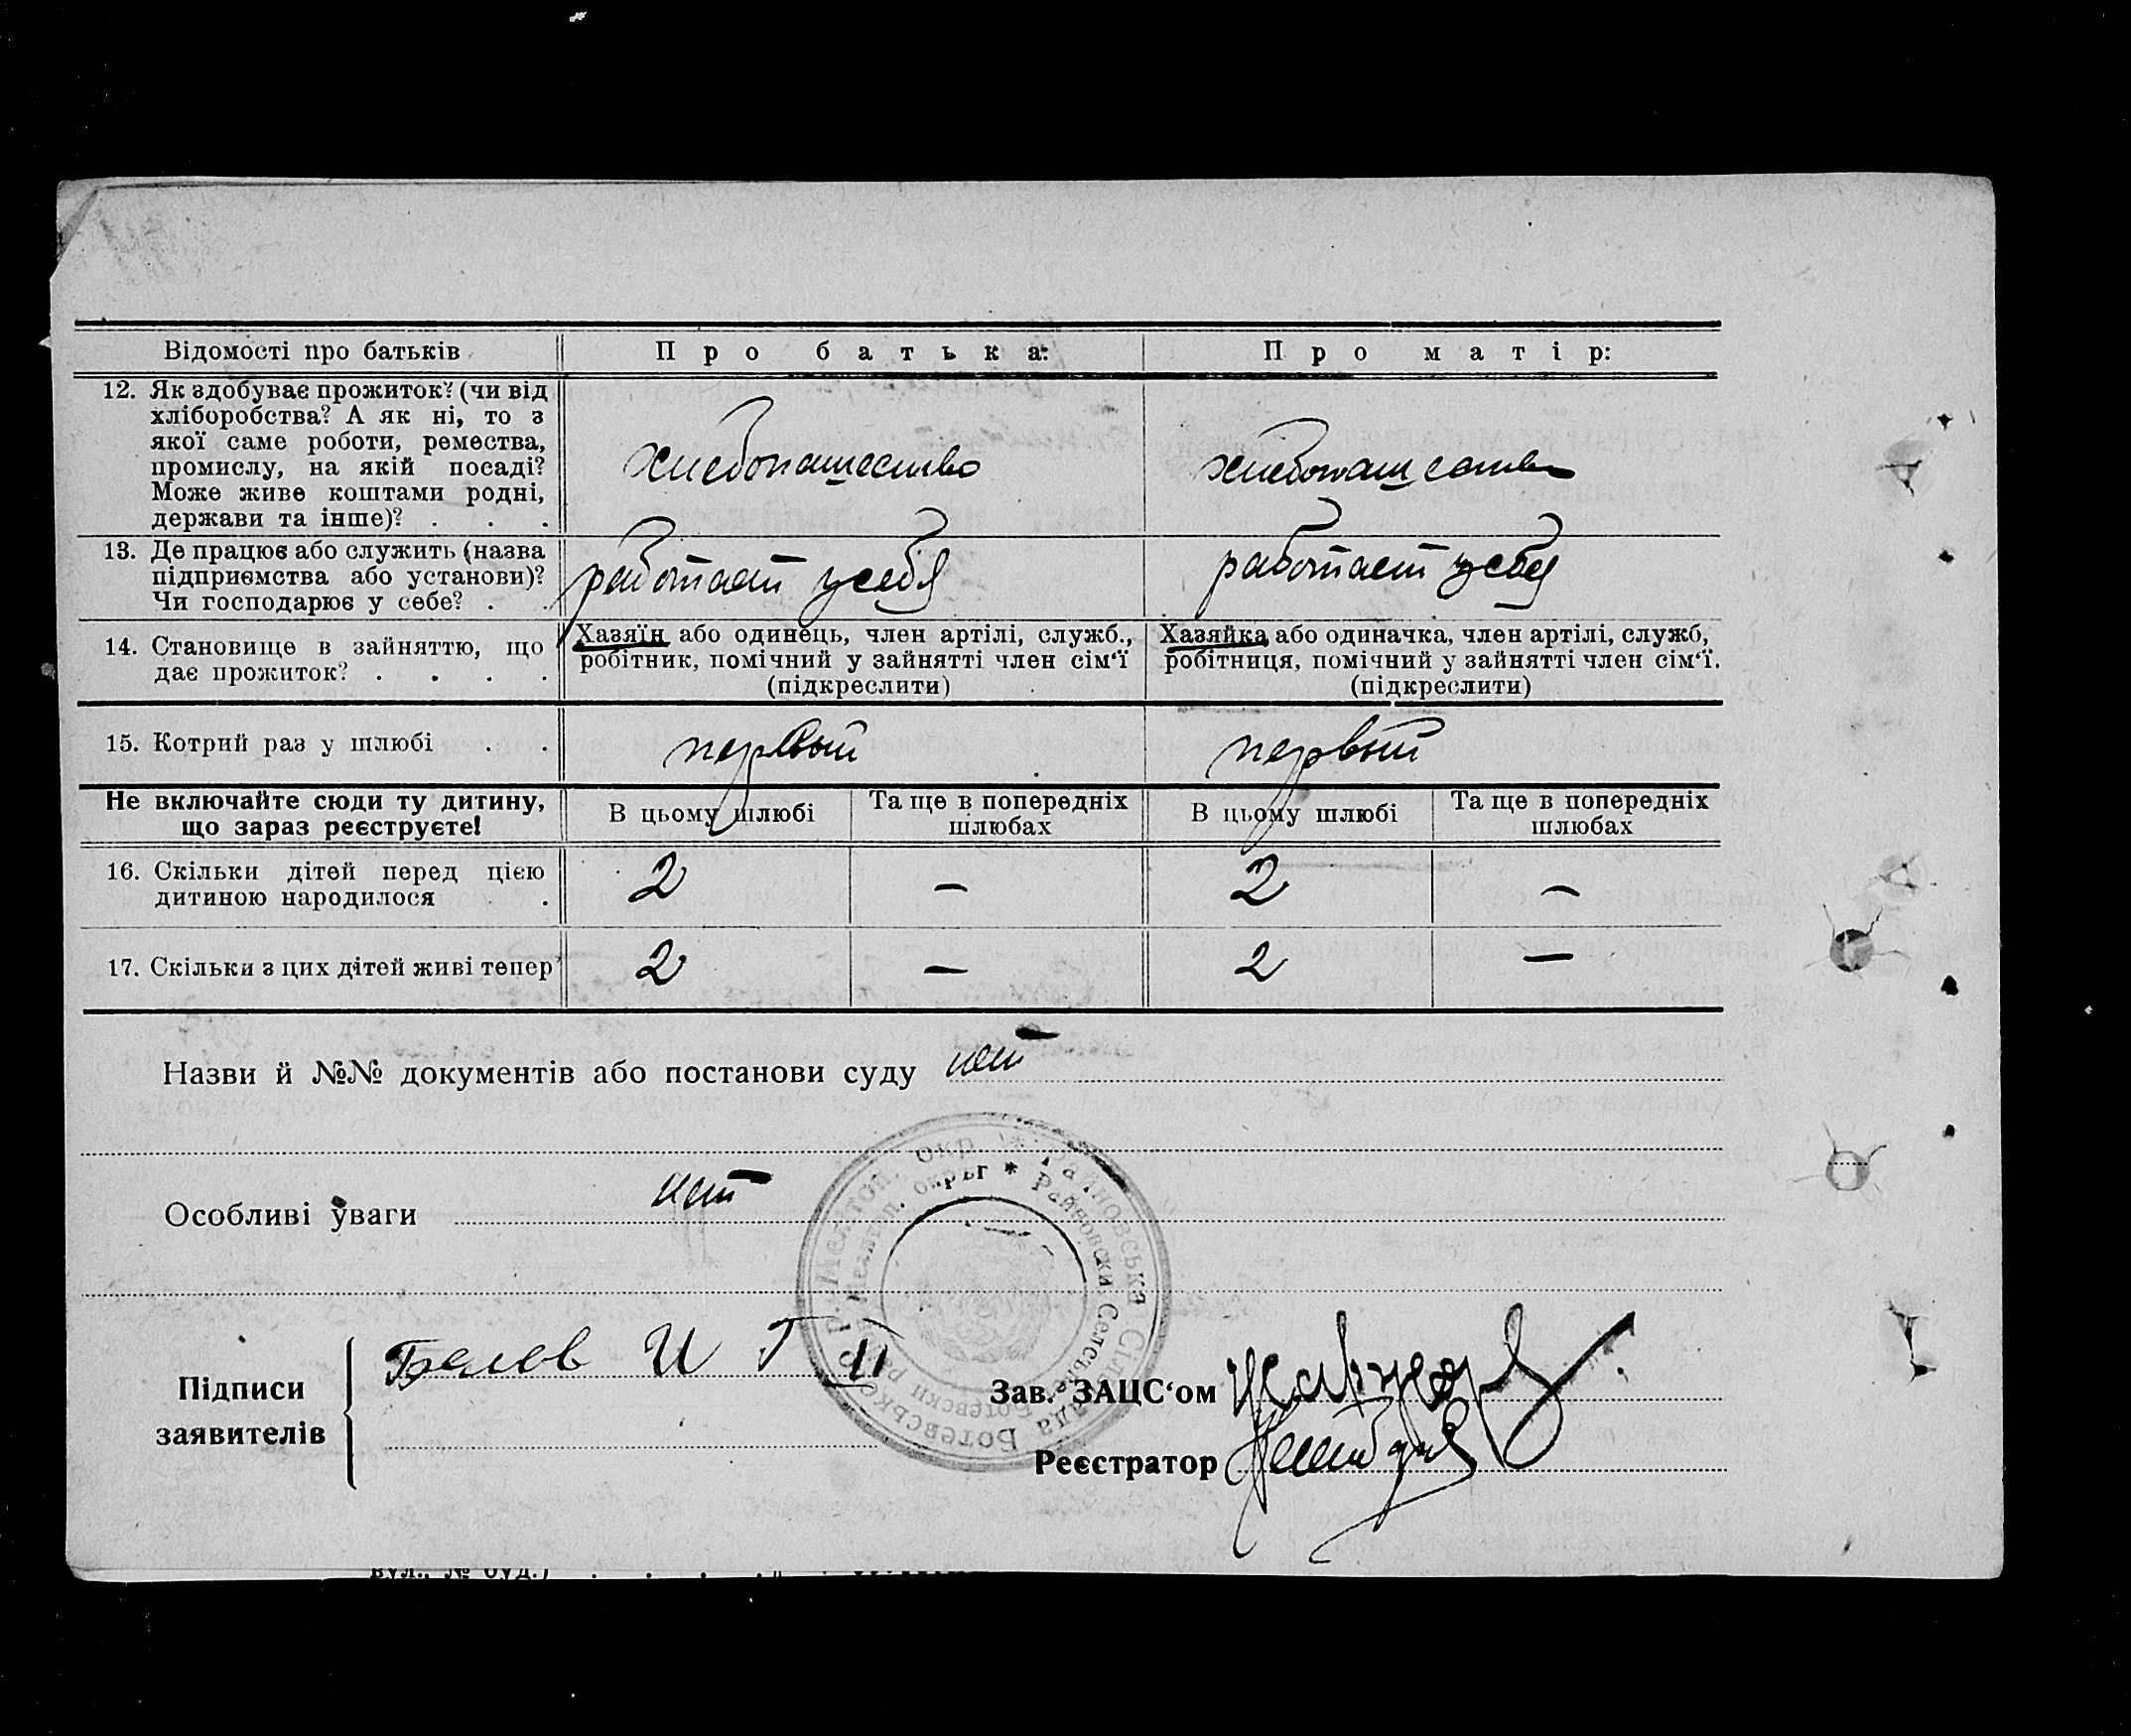 Відомості про батьків
Про батька:
Про матір:
12. Як здобуває прожиток? (чи від
хліборобства? А як ні, то з
якої саме роботи, ремества,
промислу, на якій посаді?
Може живе коштами родні,
держави та інше)? . . .
хлебопашество
хлебопашество
13. Де працює або служить (назва
підприємства або установи)?
Чи господарює у себе? . .
работает у себя
работает у себя
14. Становище в зайняттю, що
дає прожиток? . . . .
Хазяїн або одинець, член артілі, служб.,
робітник, помічний у зайнятті член сім‘ї
(підкреслити)
Хазяйка або одиначка, член артілі, служб,
робітниця, помічний у зайнятті член сім‘ї.
(підкреслити)
15. Котрий раз у шлюбі . .
первый
первый
Не включайте сюди ту дитину,
що зараз реєструєте!
В цьому шлюбі
Та ще в попередніх
шлюбах
В цьому шлюбі
Та ще в попередніх
шлюбах
16. Скільки дітей перед цією
дитиною народилося .
2 — 2 —
17. Скільки з цих дітей живі тепер
2 — 2 —
Назви й №№ документів або постанови суду нет
Особливі уваги нет
Райновська Сільрада Ботевськ
Мелітоп. окр.
Підписи
заявителів
Белов И Г II
Зав. ЗАЦС‘ом
Реєстратор
вул., № буд.)